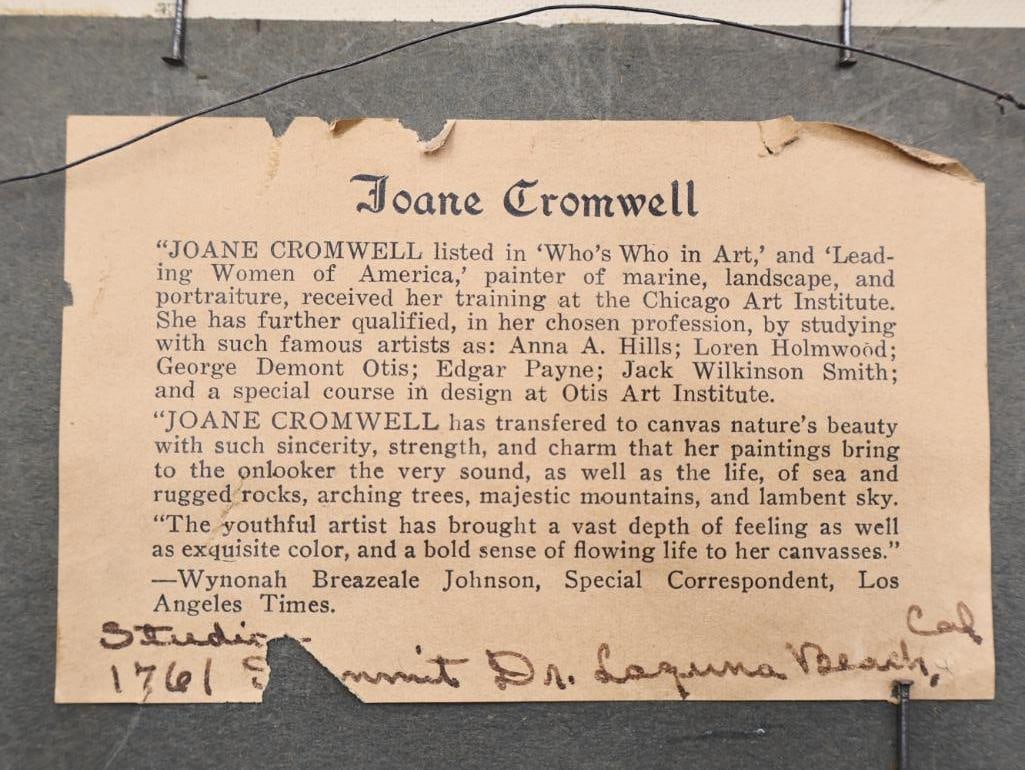 Joane Cromwell
“JOANE CROMWELL listed in ‘Who’s Who in Art,’ and ‘Lead-
ing Women of America,’ painter of marine, landscape, and
portraiture, received her training at the Chicago Art Institute.
She has further qualified, in her chosen profession, by studying
with such famous artists as: Anna A. Hills; Loren Holmwood;
George Demont Otis; Edgar Payne; Jack Wilkinson Smith;
and a special course in design at Otis Art Institute.
“JOANE CROMWELL has transfered to canvas nature’s beauty
with such sincerity, strength, and charm that her paintings bring
to the onlooker the very sound, as well as the life, of sea and
rugged rocks, arching trees, majestic mountains, and lambent sky.
“The youthful artist has brought a vast depth of feeling as well
as exquisite color, and a bold sense of flowing life to her canvasses.”
—Wynonah Breazeale Johnson, Special Correspondent, Los
Angeles Times.
Studio
1761 Dr. Laguna Beach, Cal